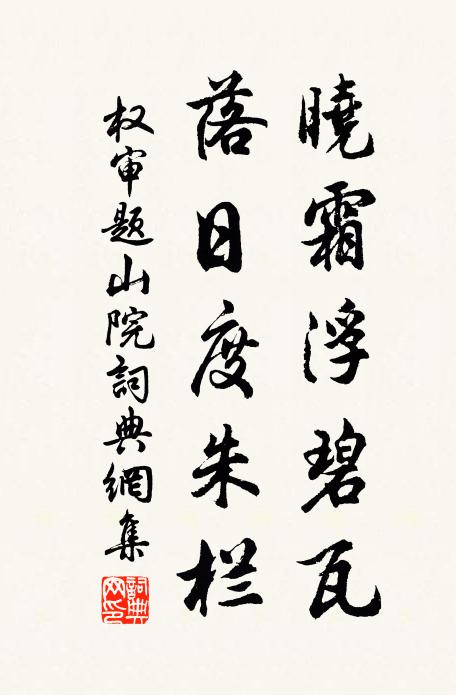 曉霜浮碧瓦
落日度朱栏
权审题山院詞典網集
詞典网印